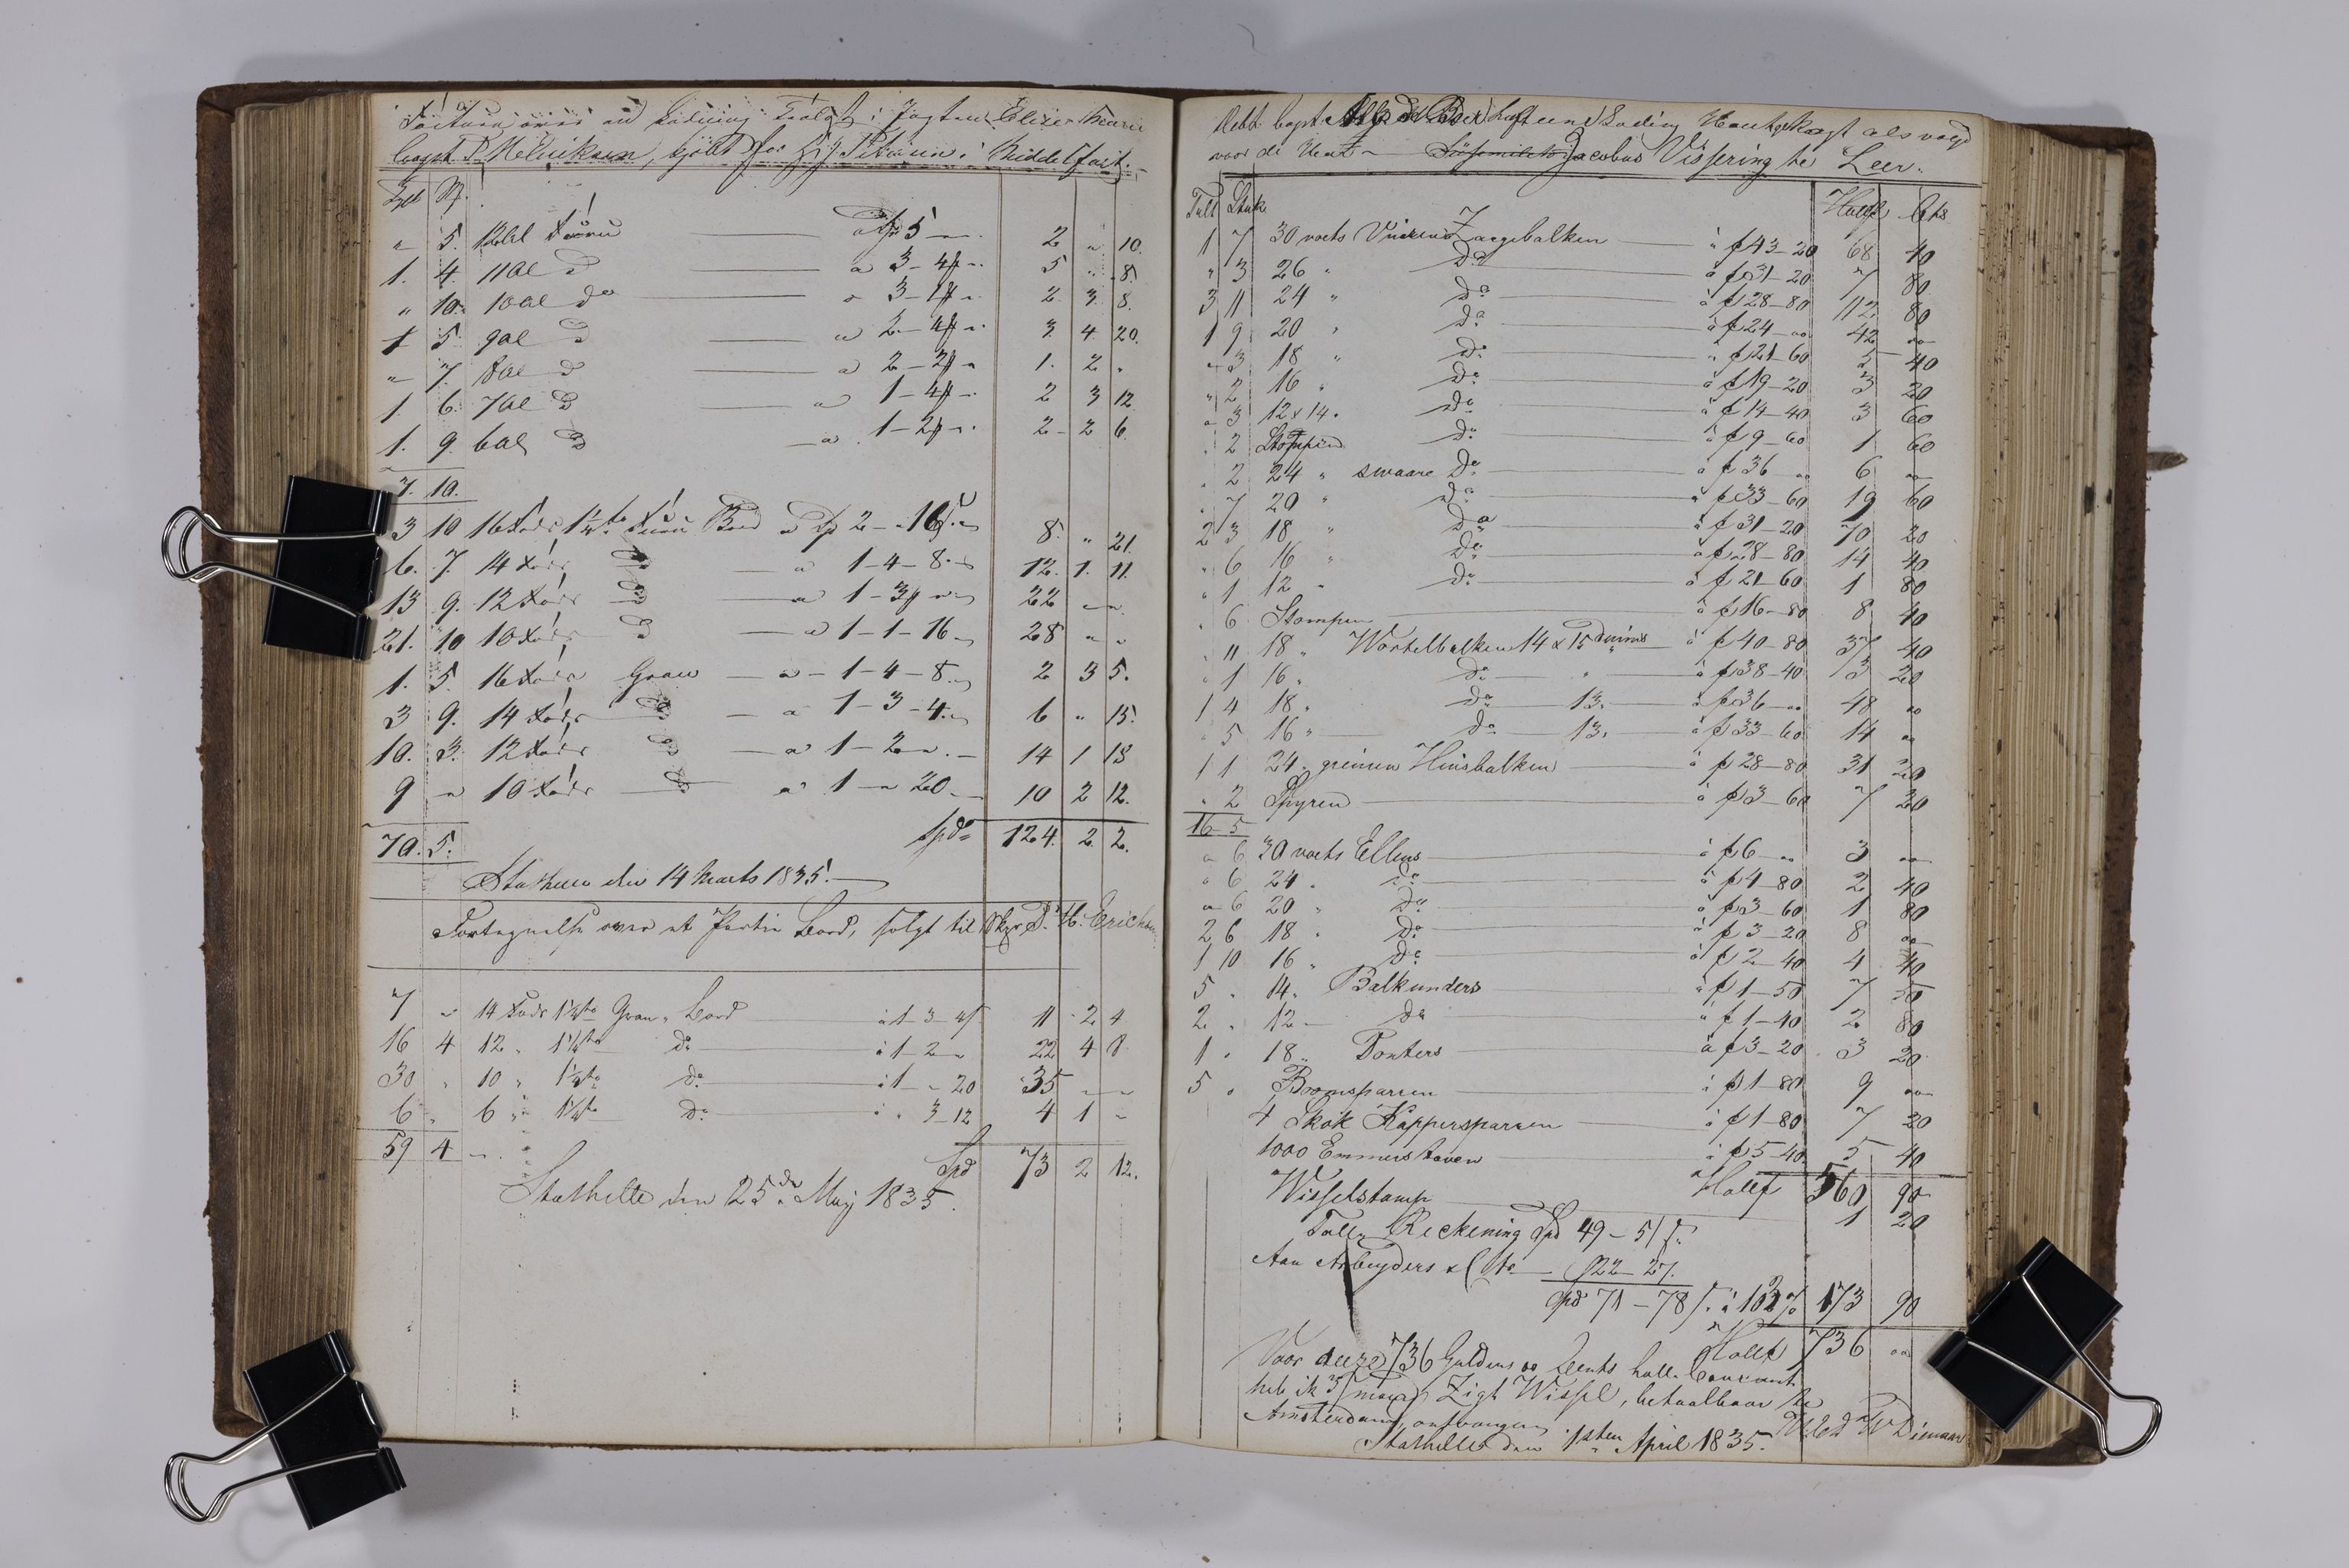 Factura over en Ladning Trælast i Jagten Elise Marie
Capt P. Henriksen, kjöbt for Hr. Petersen i Middelfart.
Tylt St.
" 5. 12 Al Furu a Sp 5 " 2 " 10.
1. 4. 11 Al do a 3-4 " 5 " 8.
" 10. 10 Al do a 3-1 " 2. 3. 8.
1 5 9 Al do a 2-4 " 3. 4. 20.
" 7. 8 Al do a 2-2 " 1. 2 "
1. 6. 7 Al do a 1-4 " 2 3 12
1. 9. 6 Al do a 1-2 " 2 2 6.
7. 10.
3 10 16 Fods 1¼ to Furu Bord a Sp 2 - 16 8. " 21.
6. 7. 14 Fods do a 1-4-8. 12. 1. 11.
13 9. 12 Fods do a 1-3 " 22 " "
21. 10 10 Fods do a 1-1-16 28 " "
1. 5. 16 Fods Gran a 1-4-8. 2 3 5.
3 9. 14 Fods do a 1-3-4. 6 " 15.
10. 3. 12 Fods do a 1-2 " 14 1 13
9 " 10 Fods do a 1 " 20 10 2 12.
70. 5. Spd 124. 2. 2.
Stathelle den 14 Marts 1835.
Fortegnelse over et Partie Bord, solgt til Skpr P. H. Erichsen
7 " 14 Fods 1¼ to Gran Bord à 1-3-4 11 2 4
16 4 12 " 1¼ to do à 1-2 " 22 4 8
30 " 10 " 1¼ to do à 1 - " 20 35 " "
6 " 6 " 1¼ to do à " 3-12 4 1 "
59 4 Spd 73 2 12.
Stathelle den 25de May 1835.
Debt Capt de Boer Luft eene Lading Hout kogt als volgt
voor de Heer Jacobus Vissering te Leer.
Tult Stuk Hollf Cts
1 7 30 voets Vuuren Zaegebalken à f 43-20 68 40
" 3 26 " do à f 31-20 7 80
3 11 24 " do à f 28-80 112 80
1 9 20 " do à f 24-" 42 "
" 3 18 " do à f 21-60 5 40
" 2 16 " do à f 19-20 3 20
" 3 12 x 14 " do à f 14-40 3 60
" 2 Stompen do à f 9-60 1 60
" 2 24 " swaare do à f 36 " 6 "
" 7 20 " do à f 33-60 19 60
2 3 18 " do à f 31-20 70 20
" 6 16 " do à f 28-80 14 40
" 1 12 " do à f 21-60 1 80
" 6 Stompen à f 16-80 8 40
" 11 18 " Wortelbalken 14 x 15 Duims à f 40-80 37 40
" 1 16 " do " à f 38-40 3 20
1 4 18 " do 13 " à f 36-" 48 "
" 5 16 " do 13 " à f 33-60 14 "
1 1 24 " greinen Huisbalken à f 28-80 31 20
" 2 Spyren à f 3-60 7 20
16 5
" 6 30 voets Ellens à f 6-" 3 "
" 6 24 " do à f 4-80 2 40
" 6 20 " do à f 3-60 1 80
2 6 18 " do à f 3-20 8 "
1 10 16 " do à f 2-40 4 40
5 " 14 " Balkunders à f 1-50 7 50
2 " 12 " do à f 1-40 2 80
1 " 18 " Ponters à f 3-20 3 20
5 " Boomsparren à f 1-80 9 "
4 Skok Kappersparren à f 1-80 7 20
1000 Emmerstaven à f 5-40 5 40
Hollf 560 90
Wisselstamp 1 20
Toll Reckening Spd 49-51 s.
Aan Arbeyders 22-27.
Spd 71-78 s. à 102 % 173 90
Hollf 736 "
Voor deeze 736 Guldens " Cents holl. Courant
heb ik 3/m Zigt Wissel, betaalbaar te
Amsterdam, ontvangen
Stathelle den 1sten April 1835.